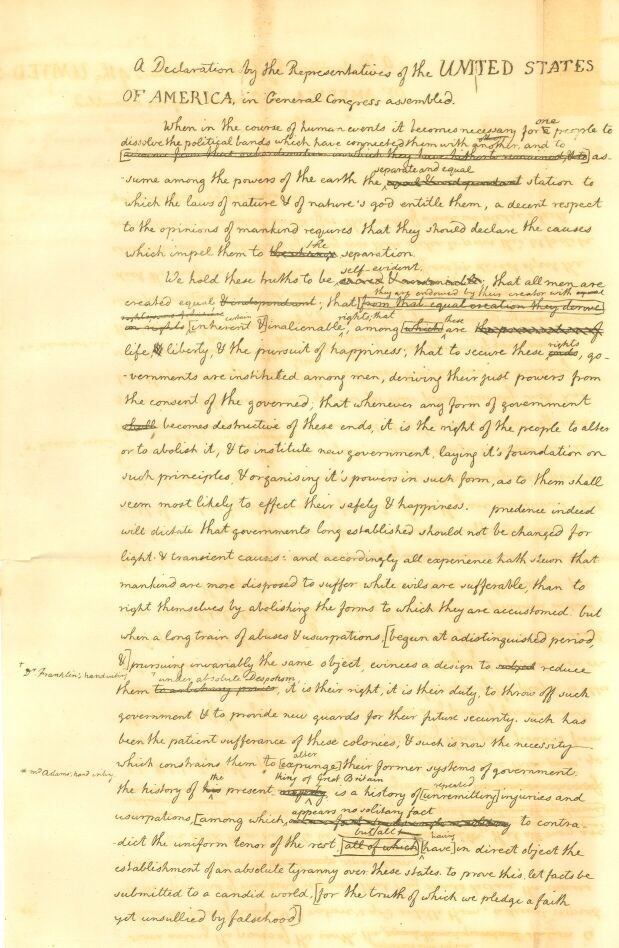 A Declaration by the Representatives of the UNITED STATES
OF AMERICA, in General Congress assembled.
one
When in the course of human events it becomes necessary for a people to
dissolve the political bands which have connected them with another, and to
advance from that subordination in which they have hitherto remained, & to] as-
separate and equal
-sume among the powers of the earth the equal & independant station to
which the laws of nature & of nature's god entitle them, a decent respect
to the opinions of mankind requires that they should declare the causes
the
which impel them to the change separation.
self-evident,
We hold these truths to be sacred & undeniable; that all men are
they are endowed by their creator with
created equal & independant; that [from that equal creation they derive
certain rights; that these
[inherent & inalienable, among [which] are the preservation of
rights
life, & liberty, & the pursuit of happiness; that to secure these ends, go-
-vernments are instituted among men, deriving their just powers from
the consent of the governed; that whenever any form of government
shall becomes destructive of these ends, it is the right of the people to alter
or to abolish it, & to institute new government, laying it's foundation on
such principles & organising it's powers in such form, as to them shall
seem most likely to effect their safety & happiness. prudence indeed
will dictate that governments long established should not be changed for
light & transient causes: and accordingly all experience hath shewn that
mankind are more disposed to suffer while evils are sufferable, than to
right themselves by abolishing the forms to which they are accustomed. but
when a long train of abuses & usurpations, [begun at a distinguished period,
&] pursuing invariably the same object, evinces a design to subject reduce
† Dr Franklin's handwriting
† under absolute Despotism,
them to arbitrary power, it is their right, it is their duty, to throw off such
government & to provide new guards for their future security. such has
been the patient sufferance of these colonies; & such is now the necessity
alter
which constrains them to [expunge] their former systems of government.
* mr Adams' hand writing
the king of Great Britain repeated
the history of his present majesty is a history of [unremitting] injuries and
appears no solitary fact
usurpations, [among which, to contra-
but all having
dict the uniform tenor of the rest, [all of which] [have] in direct object the
establishment of an absolute tyranny over these states. to prove this, let facts be
submitted to a candid world, [for the truth of which we pledge a faith
yet unsullied by falsehood]